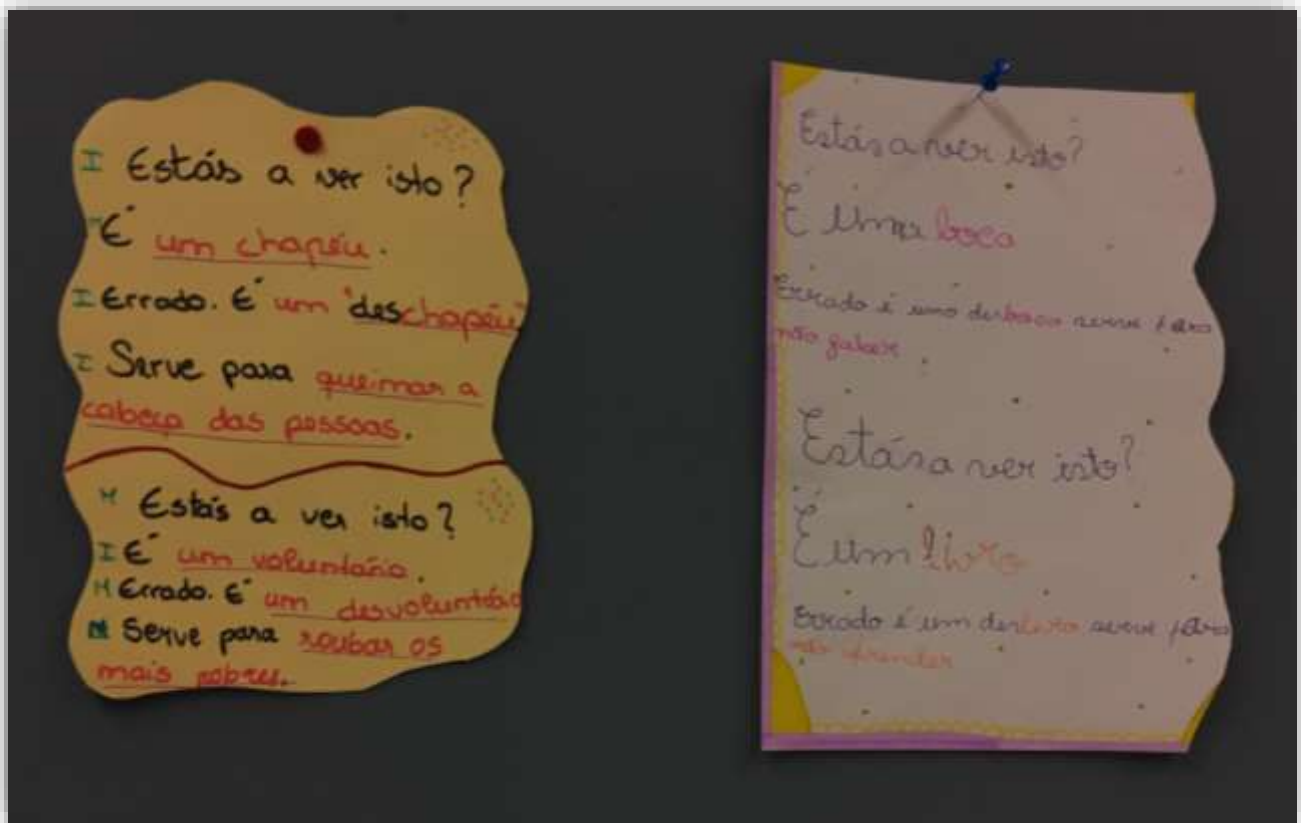 I Estás a ver isto?
M É um chapéu.
I Errado. É um "deschapéu"
I Serve para queimar a
cabeça das pessoas.
M Estás a ver isto?
I É um voluntário.
M Errado. É um desvoluntário
M Serve para roubar os
mais pobres.
Estás a ver isto?
É uma boca
Errado é uma desboca serve para
não
Estás a ver isto?
É um livro
Errado é um deslivro serve para
não aprender